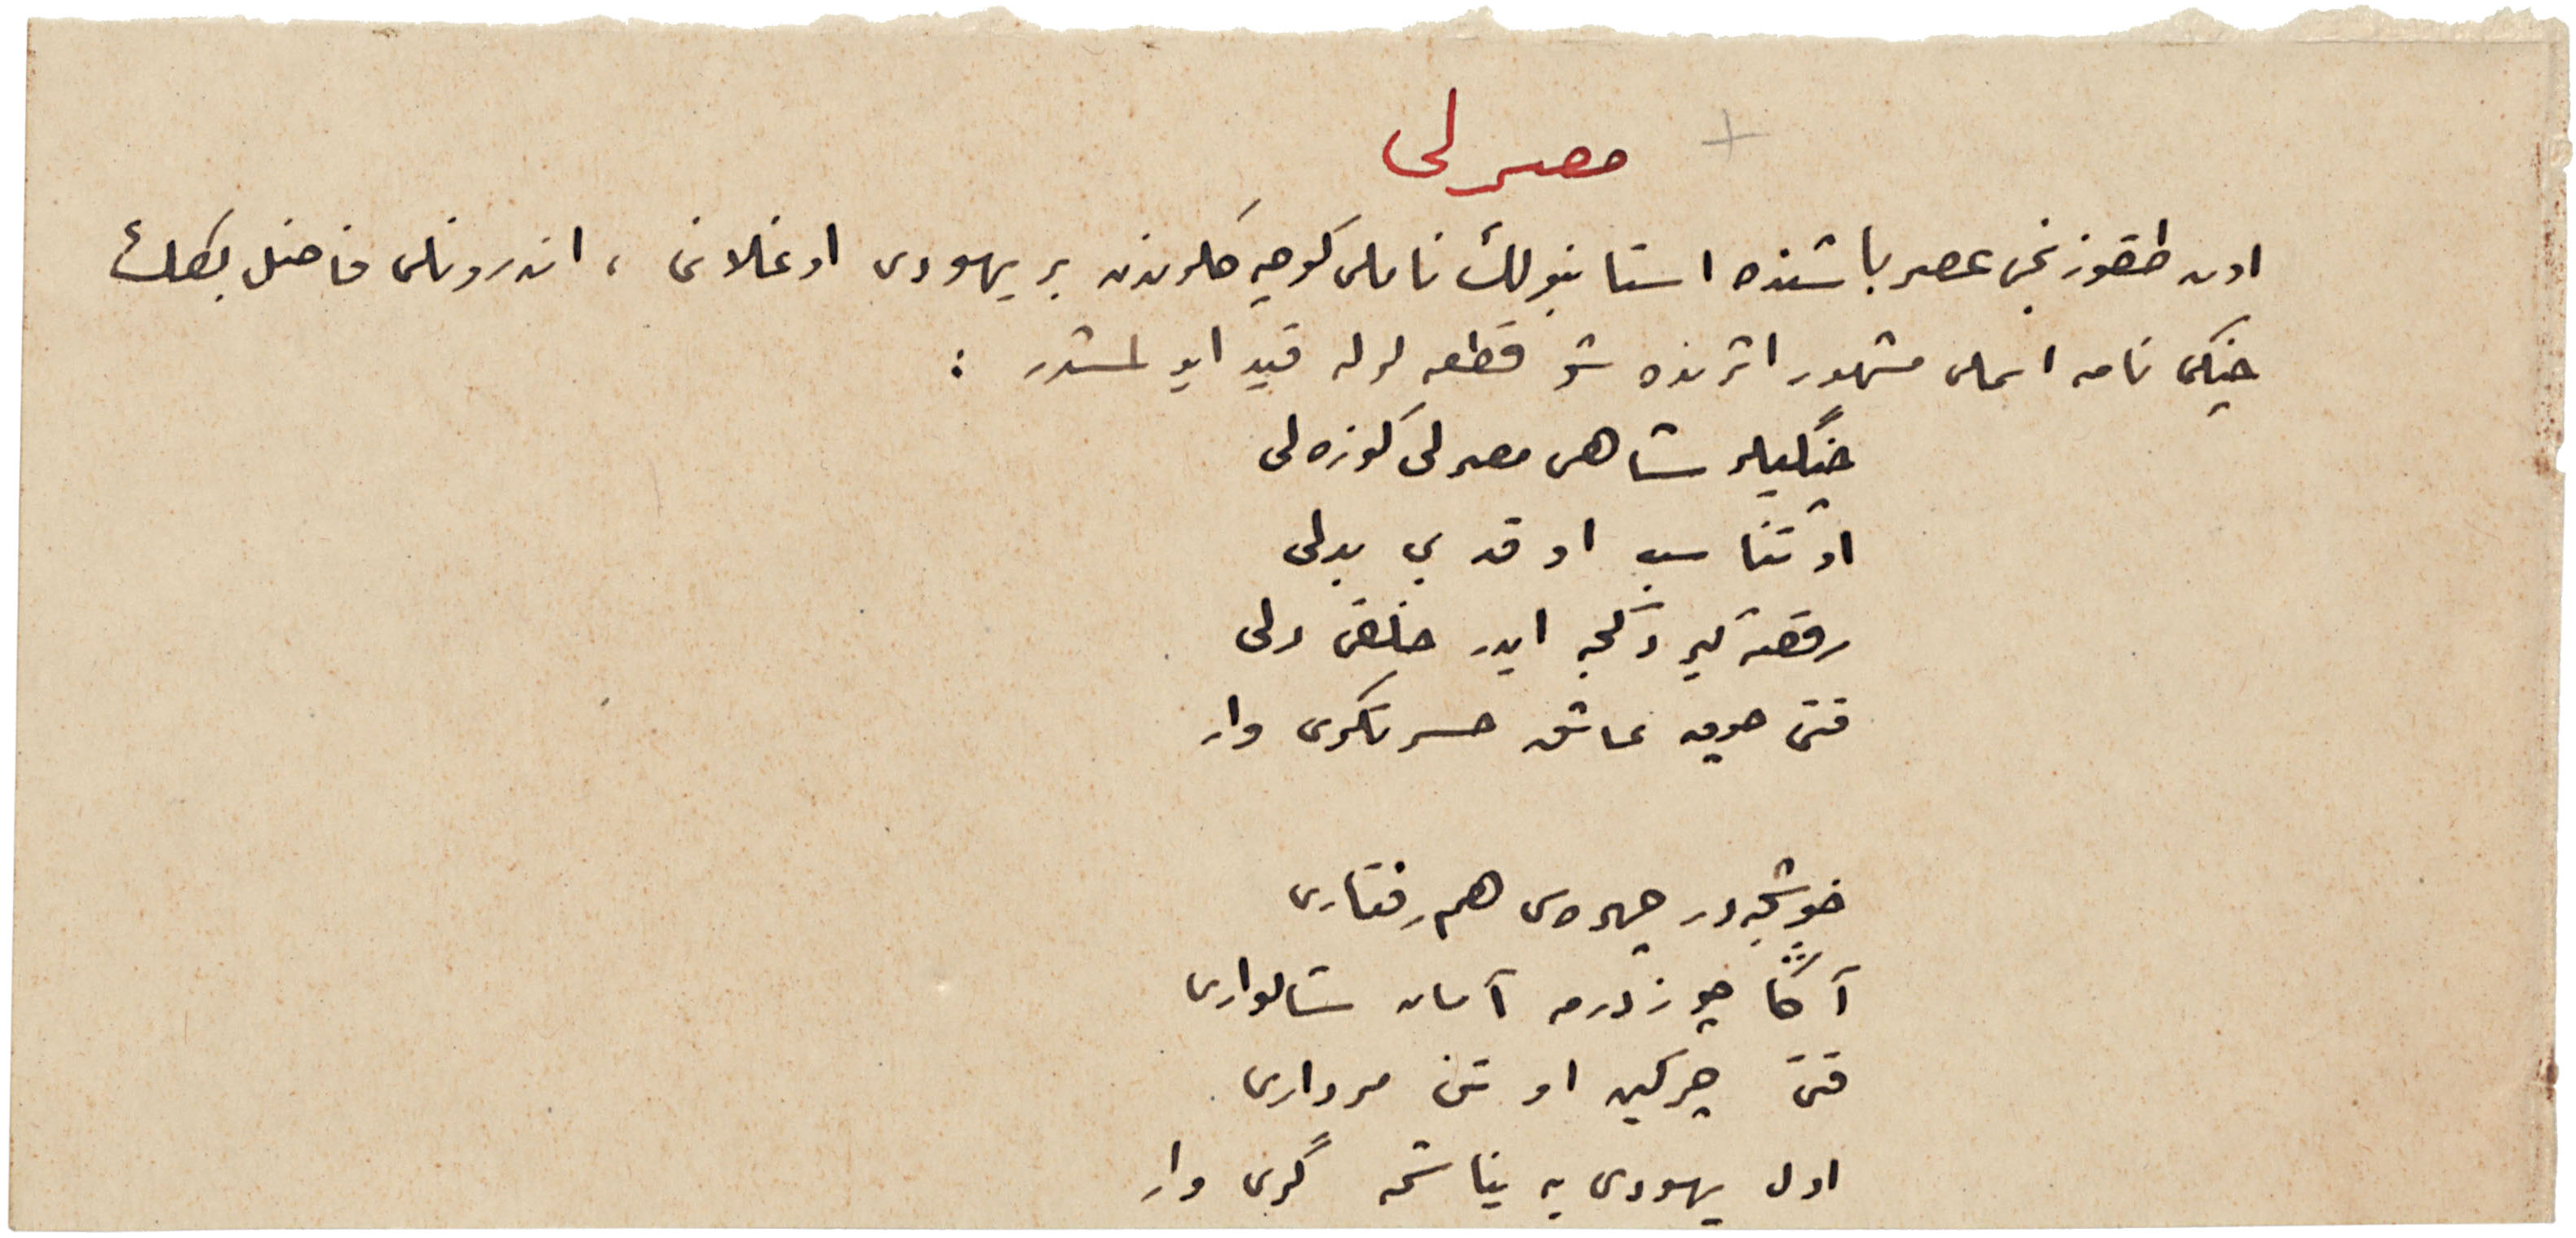 مصرلی
اون طقوزنجی عصر باشنده استانبولك ناملی كوچكلرندن بر یهودی اوغلانی ، اندرونلی فاضل بكك
چنكی نامه اسملی مشهور اثرنده شو قطعه لرله قید اولمشدر :
چنگیلر شاهی مصرلی كوزه لی
او تناسب او قد بی بدلی
رقصه كیردكجه ایدر خلقی دلی
قتی چوق عاشق حسرتكری وار
خوشجه در چهره سی هم رفتاری
آڭا چوزدرمه آمان شالواری
قتی چركین او تن مرداری
اول یهودی یه یناشمه گری وار